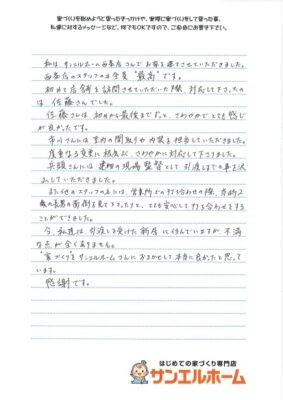 家づくりを始めようと思ったきっかけや、実際に家づくりをして思った事、
私達に対するメッセージなど、何でもOKですので、ご自由にお書き下さい。
私は、サンエルホーム西条店さんでお家を建てさせていただきました。
西条店のスタッフの方全員"最高"です。
初めて店舗を訪問させていただいた際、対応して下さったの
は、佐藤さんでした。
佐藤さんは初めから最後までずっと、さわやかでとても感じ
が良かったです。
市川さんには室内の間取りや内装を担当していただきました。
度重なる変更に根気よく、さわやかに対応して下さりました。
兵頭さんには建物の現場監督として引渡しまでの事を沢
山していただきました。
また他のスタッフの方には、営業所での打ち合わせの際、当時2
歳の長男の面倒を見て下さったりと、とても安心して打ち合わせをする
ことができました。
今、私達は、引渡しを受けた新居に住んでいますが、不満
な点が全くありません。
"家づくり"をサンエルホームさんにおまかせして本当に良かったと思って
います。
感謝です。
はじめての家づくり専門店
サンエルホーム